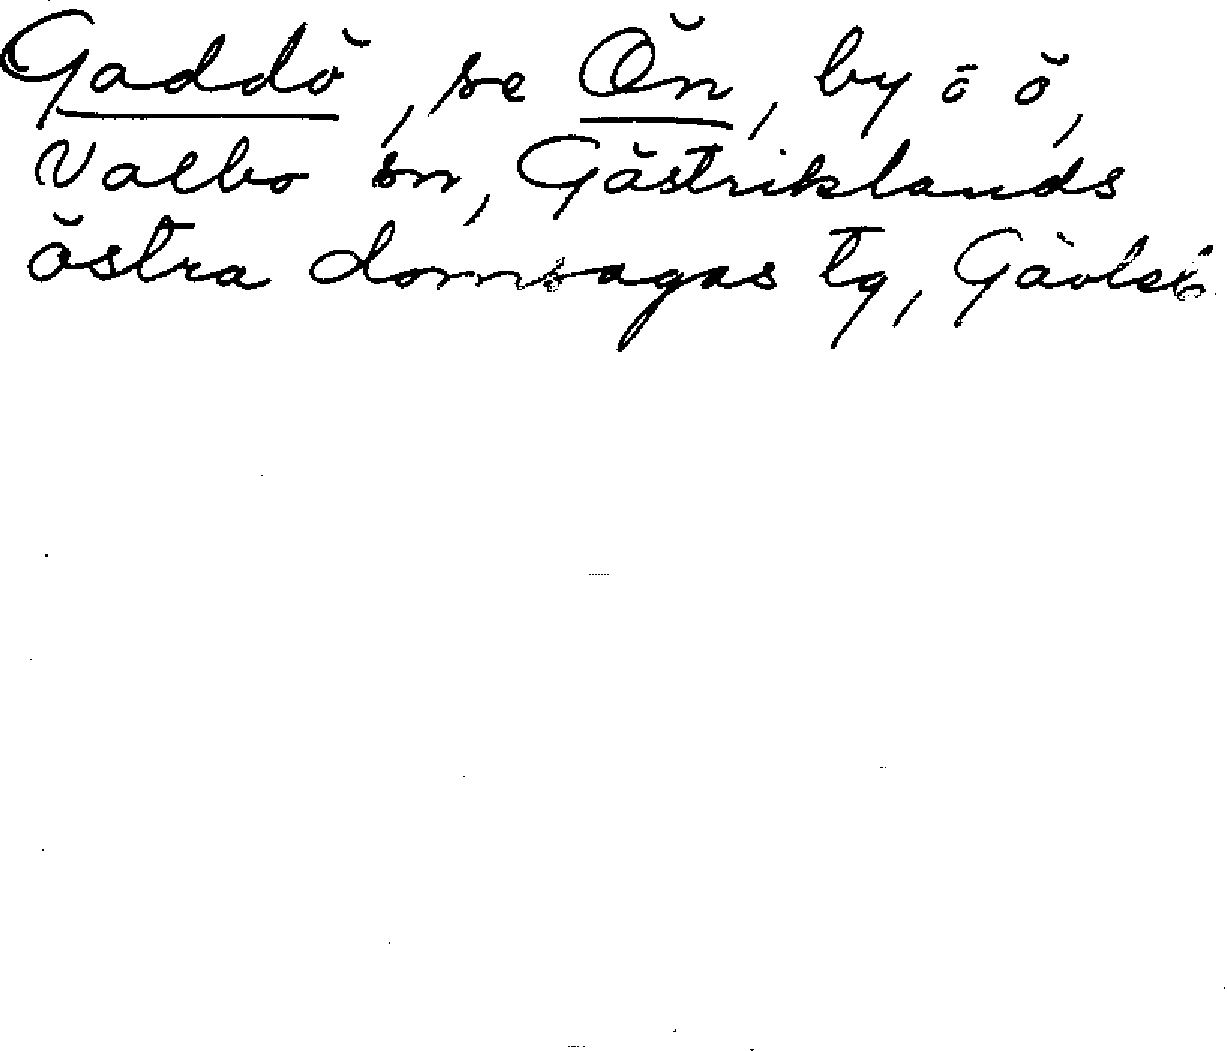 Gaddö, se Ön, by å ö,
Valbo sn, Gästriklands
östra domsagas tg, Gävleb.